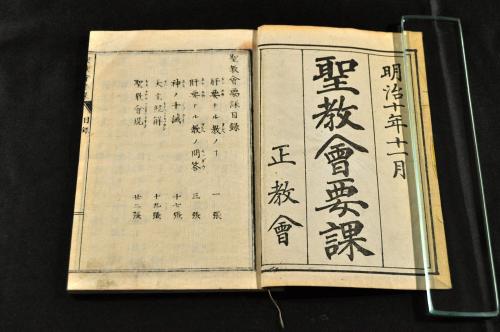 明治十年十一月
聖教會要課
正教會
聖教會要課目録
肝要ナル教ノヿ 一張
肝要ナル教ノ問答 三張
神ノ十誡 十七張
天主經解 十九張
聖教會規 廿二張
目録